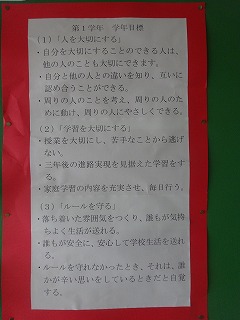 第1学年　学年目標
(1)「人を大切にする」
・自分を大切にすることのできる人は、
他の人のことも大切にできます。
・自分と他の人との違いを知り、互いに
認め合うことができる。
・周りの人のことを考え、周りの人のた
めに動け、周りの人にやさしくできる。
(2)「学習を大切にする」
・授業を大切にし、苦手なことから逃げ
ない。
・三年後の進路実現を見据えた学習をす
る。
・家庭学習の内容を充実させ、毎日行う。
(3)「ルールを守る」
・落ち着いた雰囲気をつくり、誰もが気持
ちよく生活が送れる。
・誰もが安全に、安心して学校生活を送れ
る。
・ルールを守れなかったとき、それは、誰
かが辛い思いをしているときだと自覚
する。